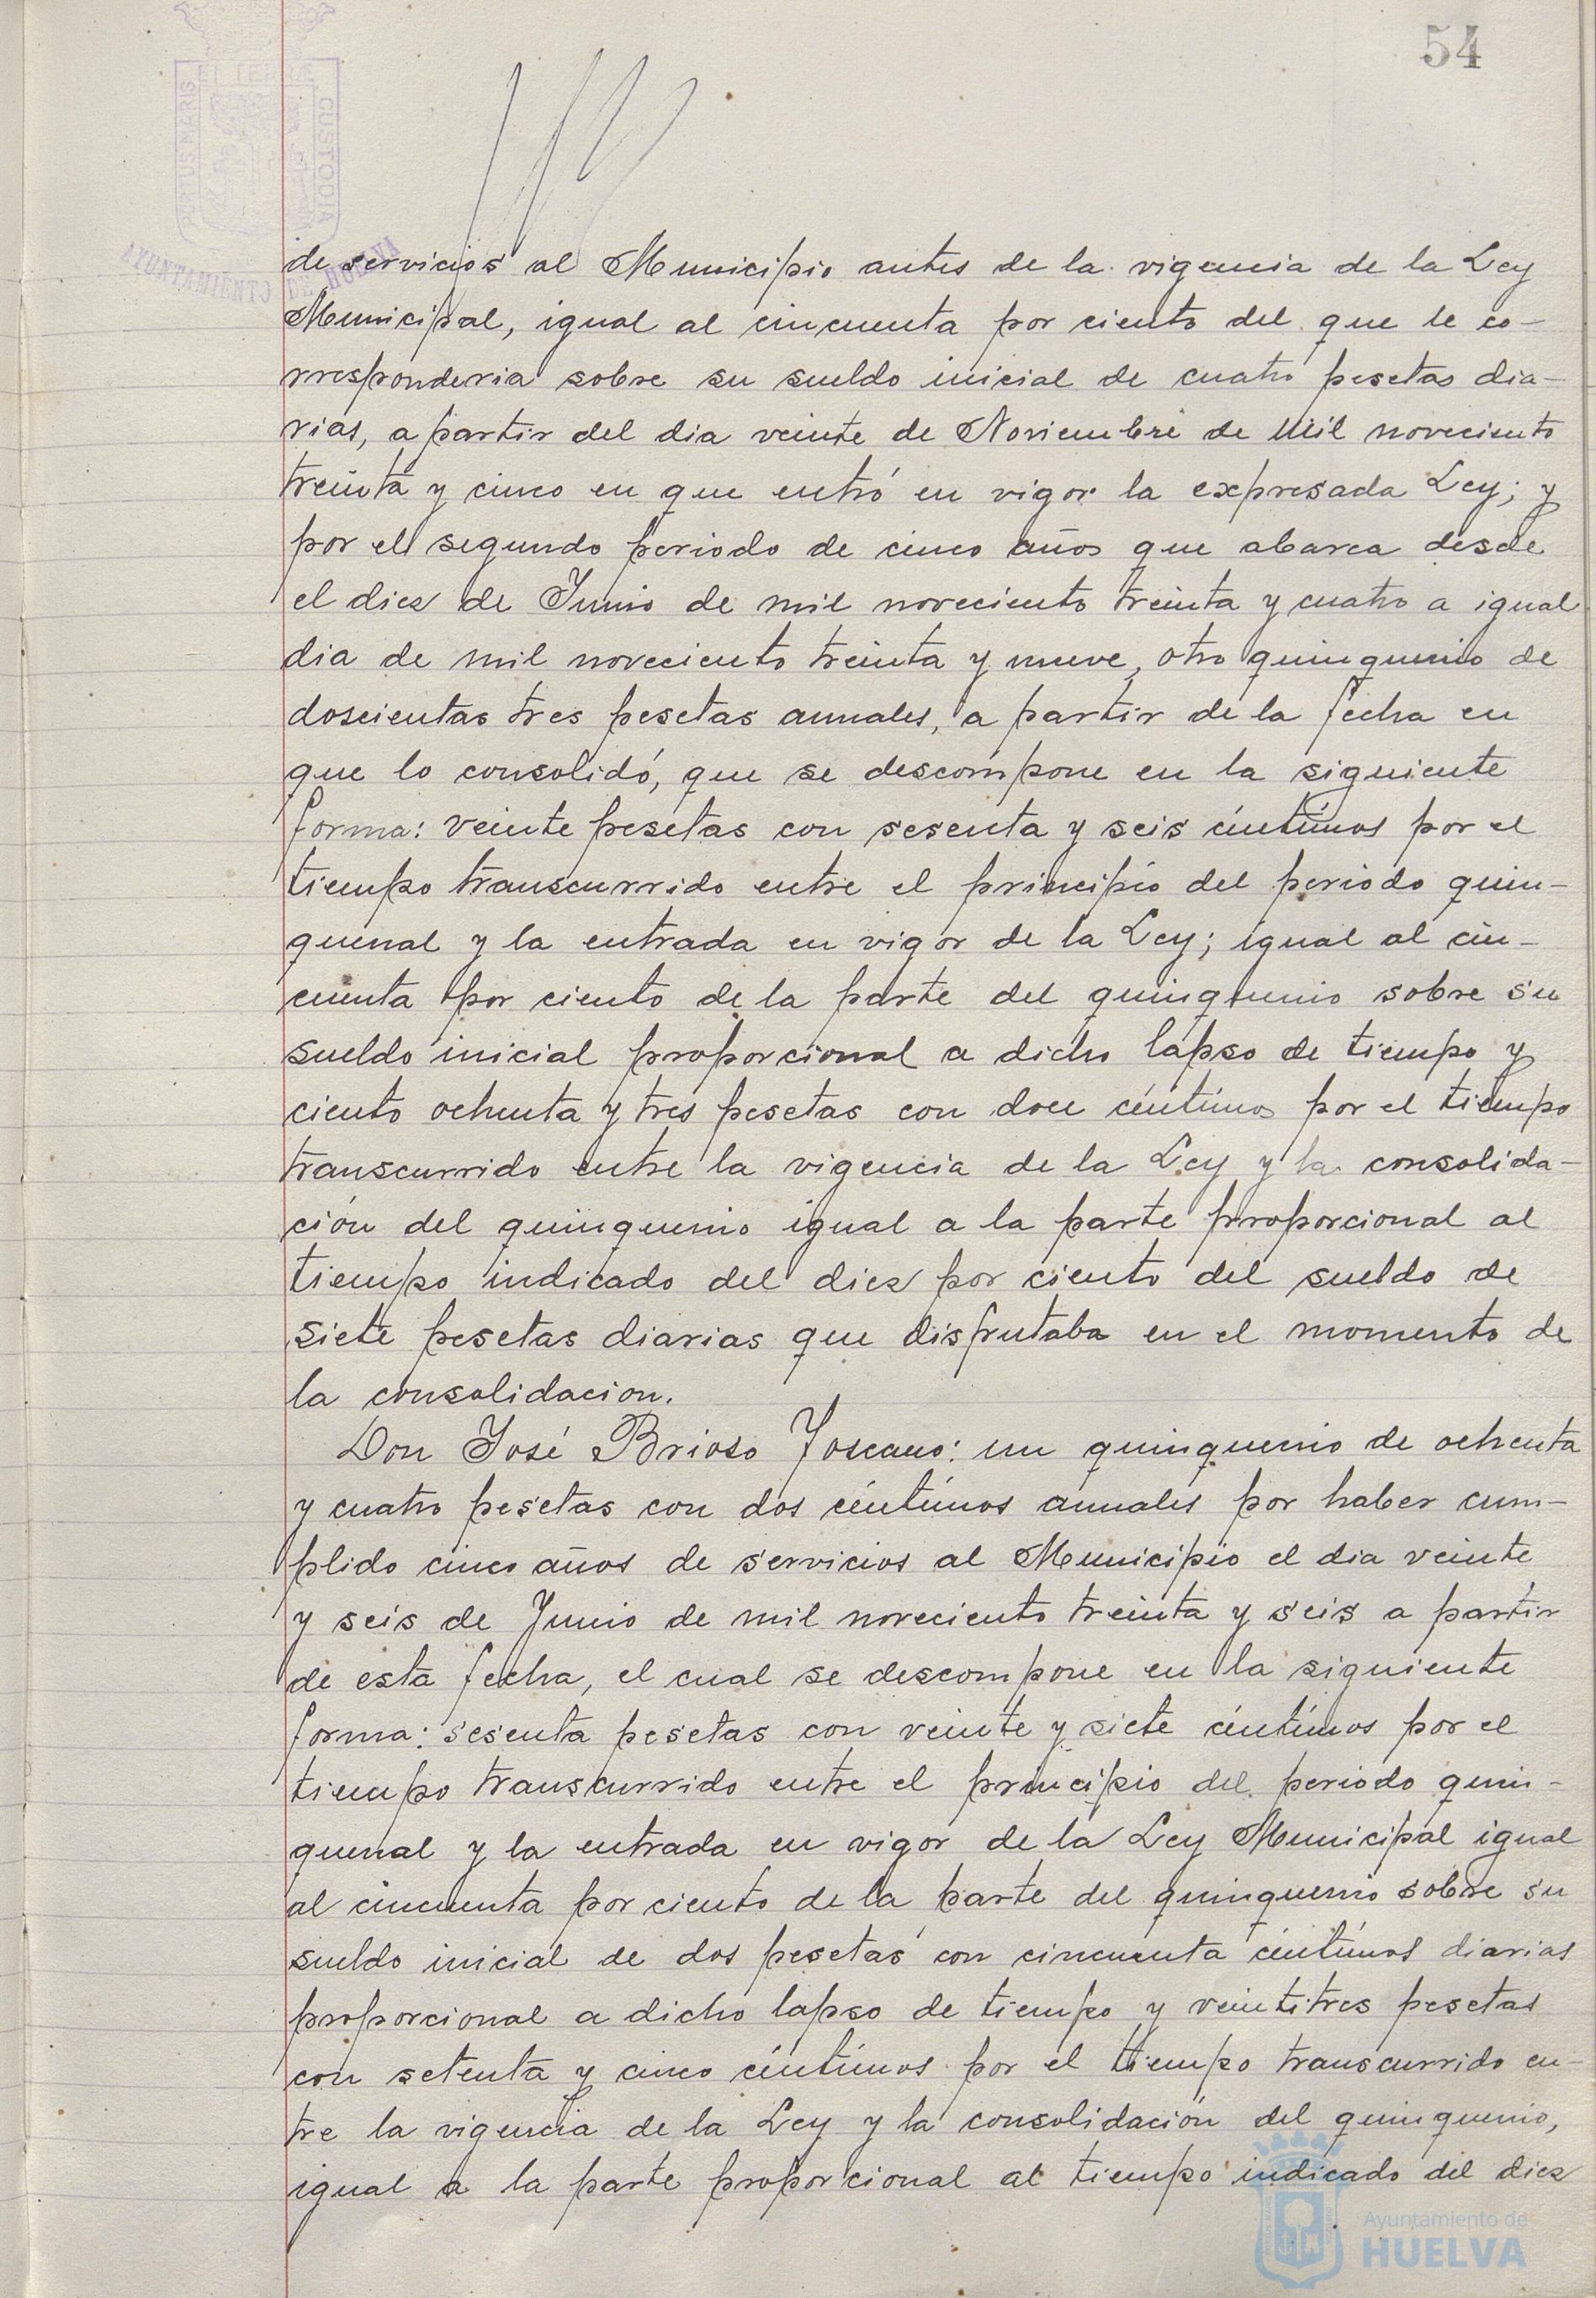 54
PORTUS MARIS
ET TERRAE
CUSTODIA
AYUNTAMIENTO DE HUELVA
de servicios al Municipio antes de la vigencia de la Ley
Municipal, igual al cincuenta por ciento del que le co-
rresponderia sobre su sueldo inicial de cuatro pesetas dia-
rias, a partir del dia veinte de Noviembre de mil noveciento
treinta y cinco en que entró en vigor la expresada Ley; y
por el segundo periodo de cinco años que abarca desde
el diez de Junio de mil noveciento treinta y cuatro a igual
dia de mil noveciento treinta y nueve, otro quinquenio de
doscientas tres pesetas anuales, a partir de la fecha en
que lo consolidó, que se descompone en la siguiente
forma: veinte pesetas con sesenta y seis céntimos por el
tiempo transcurrido entre el principio del periodo quin-
quenal y la entrada en vigor de la Ley; igual al cin-
cuenta por ciento de la parte del quinquenio sobre su
sueldo inicial proporcional a dicho lapso de tiempo y
ciento ochenta y tres pesetas con doce céntimos por el tiempo
transcurrido entre la vigencia de la Ley y la consolida-
ción del quinquenio igual a la parte proporcional al
tiempo indicado del diez por ciento del sueldo de
siete pesetas diarias que disfrutaba en el momento de
la consolidacion.
Don José Brioso Toscano: un quinquenio de ochenta
y cuatro pesetas con dos céntimos anuales por haber cum-
plido cinco años de servicios al Municipio el dia veinte
y seis de Junio de mil noveciento treinta y seis a partir
de esta fecha, el cual se descompone en la siguiente
forma: sesenta pesetas con veinte y siete céntimos por el
tiempo transcurrido entre el principio del periodo quin-
quenal y la entrada en vigor de la Ley Municipal igual
al cincuenta por ciento de la parte del quinquenio sobre su
sueldo inicial de dos pesetas con cincuenta céntimos diarias
proporcional a dicho lapso de tiempo y veintitres pesetas
con setenta y cinco céntimos por el tiempo transcurrido en-
tre la vigencia de la Ley y la consolidación del quinquenio,
igual a la parte proporcional al tiempo indicado del diez
Ayuntamiento de
HUELVA